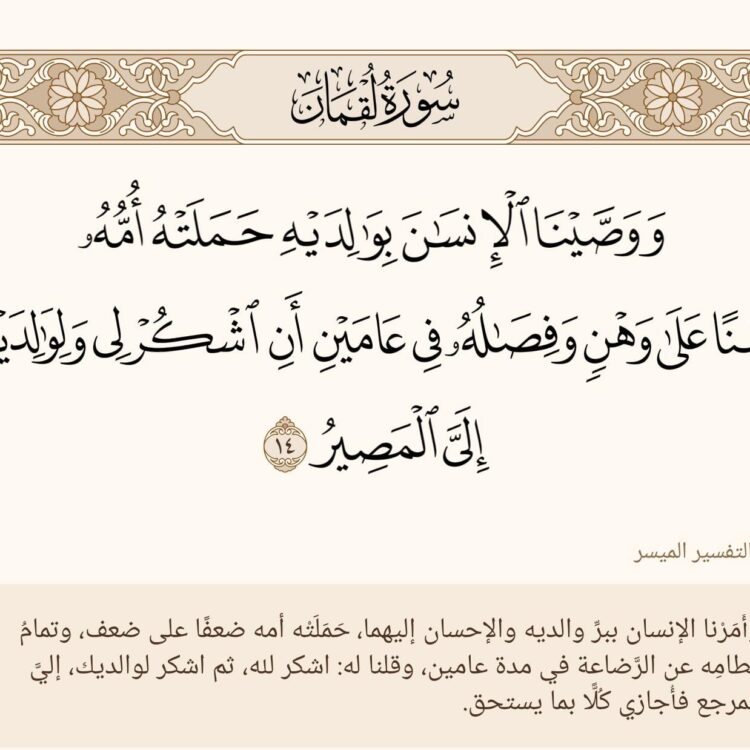 سُورَةُ لُقْمَان
وَوَصَّيْنَا ٱلْإِنسَٰنَ بِوَٰلِدَيْهِ حَمَلَتْهُ أُمُّهُۥ
عَلَىٰ وَهْنٍ وَفِصَٰلُهُۥ فِى عَامَيْنِ أَنِ ٱشْكُرْ لِى
إِلَىَّ ٱلْمَصِيرُ ١٤
التفسير الميسر
الإنسان ببرِّ والديه والإحسان إليهما، حَمَلَتْه أمه ضعفًا على ضعف، وتمامُ
عن الرَّضاعة في مدة عامين، وقلنا له: اشكر لله، ثم اشكر لوالديك، إليَّ
فأجازي كُلًّا بما يستحق.